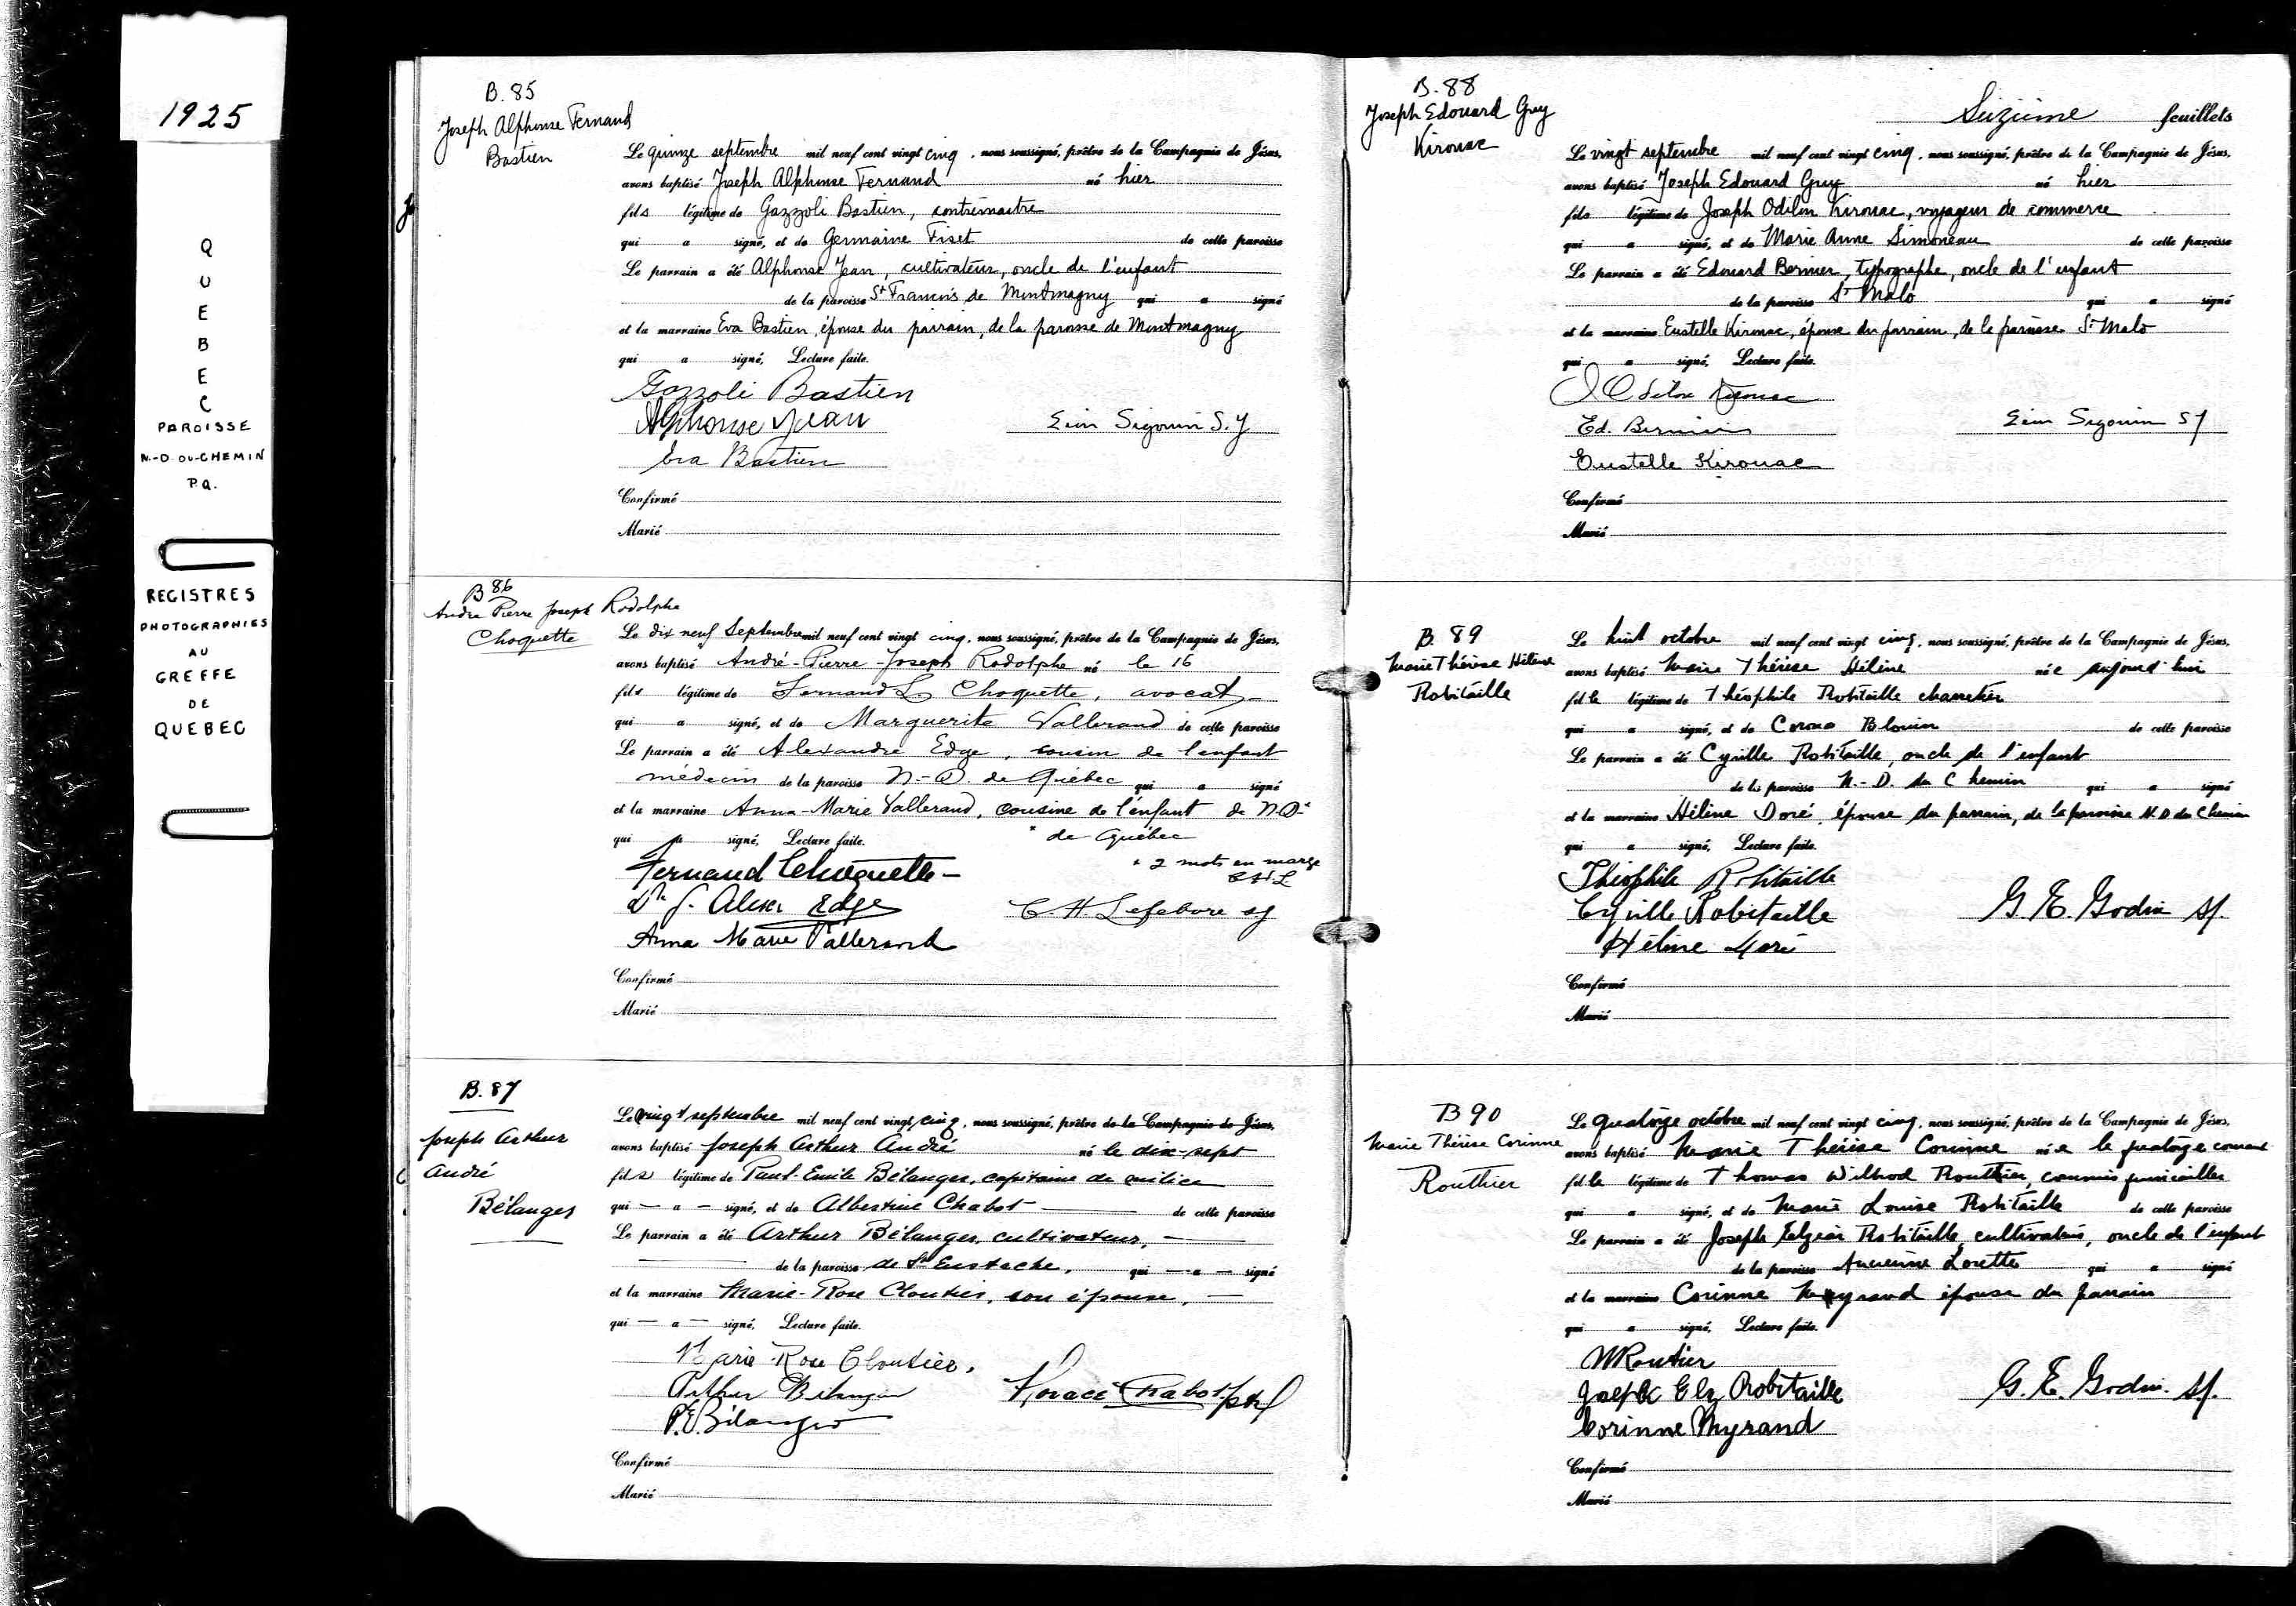 1925
QUEBEC
PAROISSE
N.-D. DU-CHEMIN
P.Q.
REGISTRES
PHOTOGRAPHIES
AU
GREFFE
DE
QUEBEC
B. 85
Joseph Alphonse Fernand
Bastien
Le quinze septembre mil neuf cent vingt cinq, nous soussigné, prêtre de la Compagnie de Jésus,
avons baptisé Joseph Alphonse Fernand né hier
fils légitime de Gozzoli Bastien, contremaitre
qui a signé, et de Germaine Fiset de cette paroisse
Le parrain a été Alphonse Jean, cultivateur, oncle de l'enfant
de la paroisse St François de Montmagny qui a signé
et la marraine Eva Bastien, épouse du parrain, de la paroisse de Montmagny
qui a signé, Lecture faite.
Gozzoli Bastien
Alphonse Jean Sigouin S.J
Eva Bastien
Confirmé
Marié
B 86
André Pierre Joseph Rodolphe
Choquette
Le dix neuf Septembre mil neuf cent vingt cinq, nous soussigné, prêtre de la Compagnie de Jésus,
avons baptisé André-Pierre-Joseph Rodolphe né le 16
fils légitime de Fernand L Choquette, avocat
qui a signé, et de Marguerite Vallerand de cette paroisse
Le parrain a été Alexandre Edge, cousin de l'enfant
médecin de la paroisse N.-D. de Québec qui a signé
et la marraine Anna-Marie Vallerand, cousine de l'enfant de N.D.*
qui a signé, Lecture faite. * de Québec
* 2 mots en marge
C.H.L
Fernand Choquette
Dr J. Alex Edge C. H Lefebvre sj
Anna Marie Vallerand
Confirmé
Marié
B. 87
Joseph Arthur
André
Bélanger
Le vingt septembre mil neuf cent vingt cinq, nous soussigné, prêtre de la Compagnie de Jésus,
avons baptisé Joseph Arthur André né le dix-sept
fils légitime de Paul-Emile Bélanger, capitaine de milice
qui — a — signé, et de Albertine Chabot — de cette paroisse
Le parrain a été Arthur Bélanger, cultivateur, —
— de la paroisse de St Eustache, qui — a — signé
et la marraine Marie-Rose Cloutier, son épouse, —
qui — a — signé, Lecture faite.
Marie-Rose Cloutier.
Arthur Bélanger Horace Chabot ptre
P.E. Bélanger
Confirmé
Marié
B. 88
Joseph Edouard Guy
Kirouac
feuillets
Le vingt septembre mil neuf cent vingt cinq, nous soussigné, prêtre de la Compagnie de Jésus,
avons baptisé Joseph Edouard Guy né hier
fils légitime de Joseph Odilon Kirouac, voyageur de commerce
qui a signé, et de Marie Anne Simoneau de cette paroisse
Le parrain a été Edouard Bernier, typographe, oncle de l'enfant
de la paroisse St Malo qui a signé
et la marraine Eustelle Kirouac, épouse du parrain, de la paroisse St Malo
qui a signé, Lecture faite.
J Odilon Kirouac
Ed. Bernier Sigouin SJ
Eustelle Kirouac
Confirmé
Marié
B. 89
Marie Thérèse Hélène
Robitaille
Le huit octobre mil neuf cent vingt cinq, nous soussigné, prêtre de la Compagnie de Jésus,
avons baptisé Marie Thérèse Hélène née aujourd'hui
fille légitime de Théophile Robitaille charretier
qui a signé, et de Corona Blouin de cette paroisse
Le parrain a été Cyrille Robitaille, oncle de l'enfant
de la paroisse N.-D. du Chemin qui a signé
et la marraine Hélène Doré épouse du parrain, de la paroisse N.D du Chemin
qui a signé, Lecture faite.
Théophile Robitaille
Cyrille Robitaille G. E. Godin sj.
Hélène Doré
Confirmé
Marié
B 90
Marie Thérèse Corinne
Routhier
Le quatorze octobre mil neuf cent vingt cinq, nous soussigné, prêtre de la Compagnie de Jésus,
avons baptisé Marie Thérèse Corinne née le quatorze courant
fille légitime de Thomas Wilbrod Routhier, commis
qui a signé, et de Marie Louise Robitaille de cette paroisse
Le parrain a été Joseph Elzéar Robitaille cultivateur, oncle de l'enfant
de la paroisse Ancienne Lorette qui a signé
et la marraine Corinne Myrand épouse du parrain
qui a signé, Lecture faite.
W Routier
Joseph Elz Robitaille G. E. Godin. sj.
Corinne Myrand
Confirmé
Marié